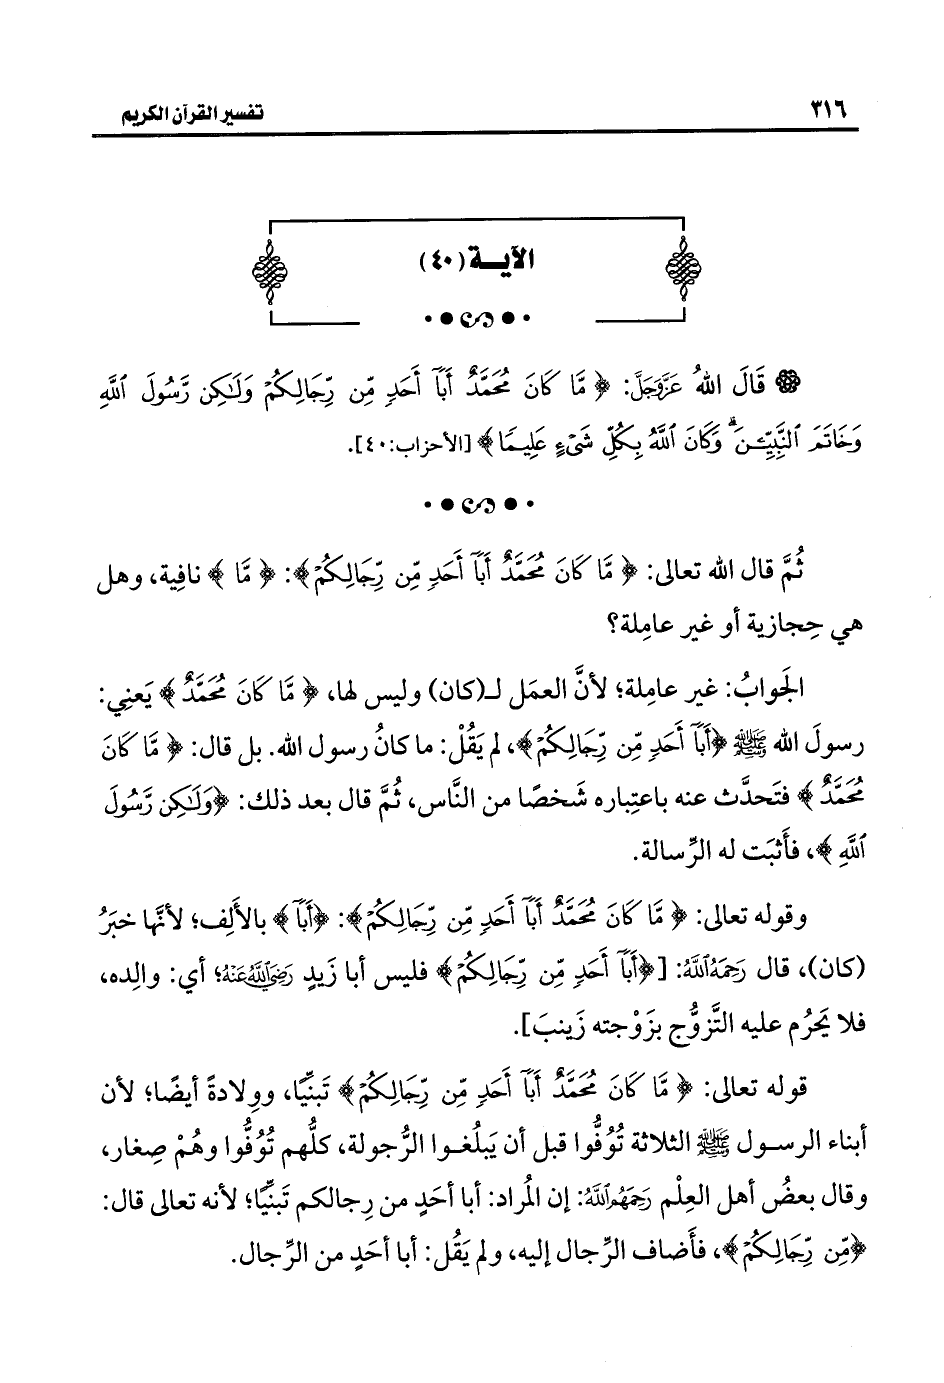 ٣١٦
تفسير القرآن الكريم
الآيــة (٤٠)
قَالَ اللهُ عَزَّوَجَلَّ: ﴿ مَّا كَانَ مُحَمَّدٌ أَبَآ أَحَدٍ مِّن رِّجَالِكُمْ وَلَٰكِن رَّسُولَ ٱللَّهِ
وَخَاتَمَ ٱلنَّبِيِّـۧنَ ۗ وَكَانَ ٱللَّهُ بِكُلِّ شَيْءٍ عَلِيمًا ﴾ [الأحزاب:٤٠].
ثُمَّ قال الله تعالى: ﴿ مَّا كَانَ مُحَمَّدٌ أَبَآ أَحَدٍ مِّن رِّجَالِكُمْ ﴾: ﴿ مَّا ﴾ نافِية، وهل
هي حِجازية أو غير عامِلة؟
الجَوابُ: غير عامِلة؛ لأنَّ العمَل لـ(كان) وليس لها، ﴿ مَّا كَانَ مُحَمَّدٌ ﴾ يَعنِي:
رسولَ الله ﷺ ﴿أَبَآ أَحَدٍ مِّن رِّجَالِكُمْ﴾، لم يَقُلْ: ما كانُ رسول الله. بل قال: ﴿ مَّا كَانَ
مُحَمَّدٌ ﴾ فتَحدَّث عنه باعتِباره شَخصًا من النَّاس، ثُمَّ قال بعد ذلك: ﴿وَلَٰكِن رَّسُولَ
ٱللَّهِ ﴾، فأَثبَت له الرِّسالة.
وقوله تعالى: ﴿ مَّا كَانَ مُحَمَّدٌ أَبَآ أَحَدٍ مِّن رِّجَالِكُمْ ﴾: ﴿أَبَآ﴾ بالأَلِف؛ لأنَّها خبَرُ
(كان)، قال رَحِمَهُ ٱللَّهُ: [﴿أَبَآ أَحَدٍ مِّن رِّجَالِكُمْ﴾ فليس أبا زَيدٍ رَضِيَ ٱللَّهُ عَنْهُ؛ أي: والِده،
فلا يَحرُم عليه التَّزوُّج بزَوْجته زَينبَ].
قوله تعالى: ﴿ مَّا كَانَ مُحَمَّدٌ أَبَآ أَحَدٍ مِّن رِّجَالِكُمْ ﴾ تَبنِّيًا، ووِلادةً أيضًا؛ لأن
أبناء الرسـول ﷺ الثلاثة تُوُفُّوا قبل أن يَبلُغـوا الرُّجولة، كلُّهم تُوُفُّوا وهُمْ صِغار،
وقال بعضُ أهل العِلْم رَحِمَهُمُ ٱللَّهُ: إن المُراد: أبا أحَدٍ من رِجالكم تَبنِّيًا؛ لأنه تعالى قال:
﴿مِّن رِّجَالِكُمْ ﴾، فأَضاف الرِّجال إليه، ولم يَقُل: أبا أحَدٍ من الرِّجال.